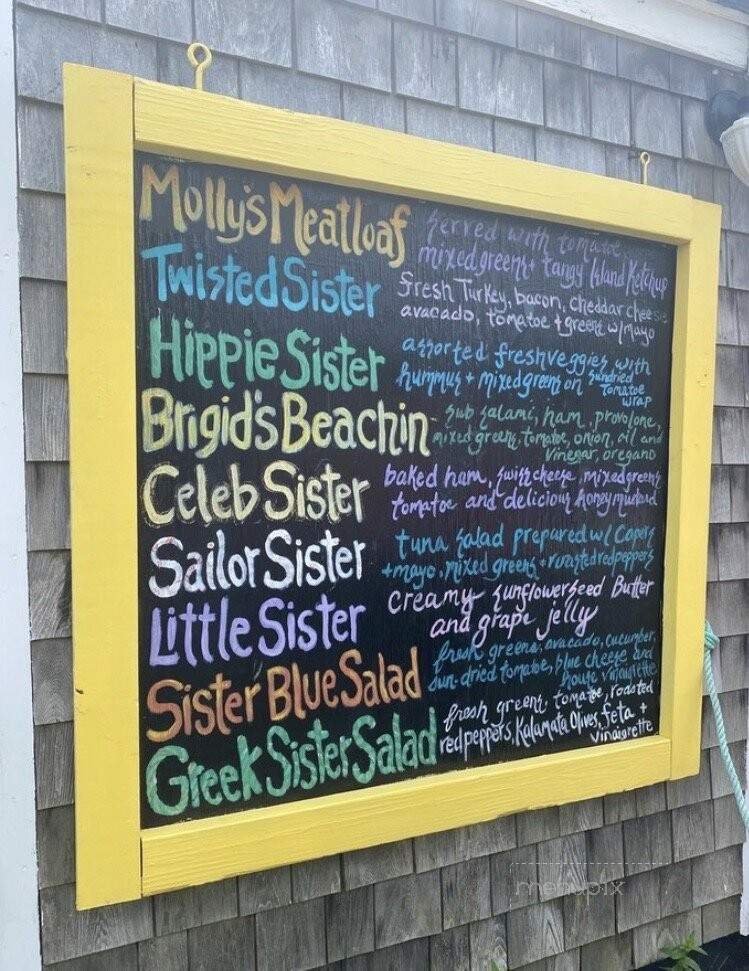 Molly's Meatloaf
served with tomatoe
mixed greens + tangy Island Ketchup
Twisted Sister
fresh Turkey, bacon, cheddar cheese
avacado, tomatoe + greens w/mayo
Hippie Sister
assorted fresh veggies with
hummus + mixed greens on sundried
tomatoe
wrap
Brigid's Beachin
- sub salami, ham, provolone,
mixed greens, tomatoe, onion, oil and
vinegar, oregano
Celeb Sister
baked ham, swiss cheese, mixed greens
tomatoe and delicious honey mustard
Sailor Sister
tuna salad prepared w/ Capers
+ mayo, mixed greens + roasted red peppers
Little Sister
creamy sunflowerseed Butter
and grape jelly
Sister Blue Salad
fresh greens, avacado, cucumber,
sun-dried tomatoe, blue cheese and
house vinaigrette
Greek Sister Salad
fresh greens, tomatoe, roasted
red peppers, Kalamata Olives, feta +
vinaigrette
menupix